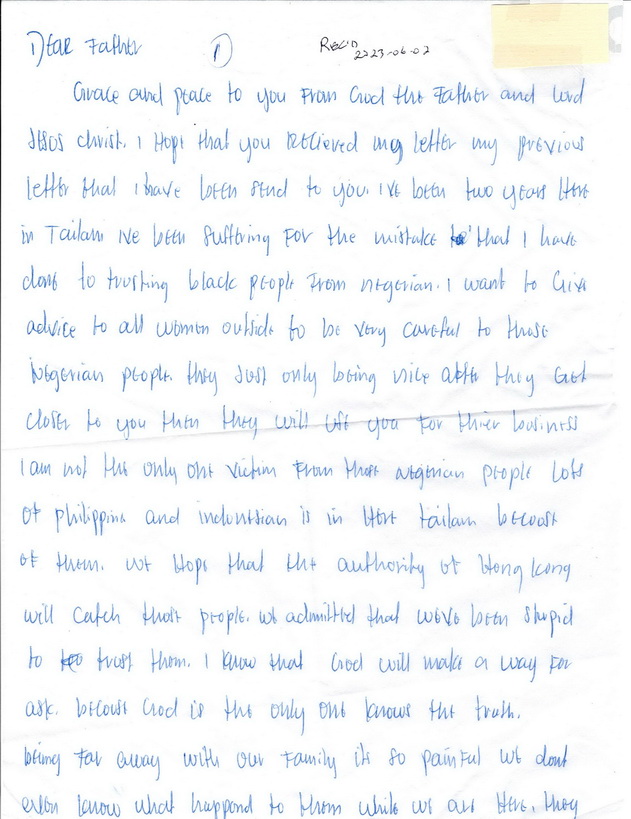 Dear Father 1) Rec'd
2223-06-02
Grace and peace to you From God the Father and Lord
Jesus christ. I Hope that you Recieved my letter my previous
letter that I have been send to you. I've been two years Here
in Tailan I've been suffering For the mistake that I have
done to trusting black people From negerian. I want to Give
advice to all women outside to be very careful to those
Negerian people. they Just only being nice after they Get
closer to you then they will use you For thier business
I am not the only one victim From those negerian people lots
of philippine and indonesian is in Here tailan becouse
of them. we Hope that the authority of Hong kong
will catch those people. we admitted that we've been stupid
to trust them. I know that God will make a way For
ask. becouse God is the only one knows the truth.
being Far away with our Family it's so painFul we dont
even know what happend to them while we are Here. they